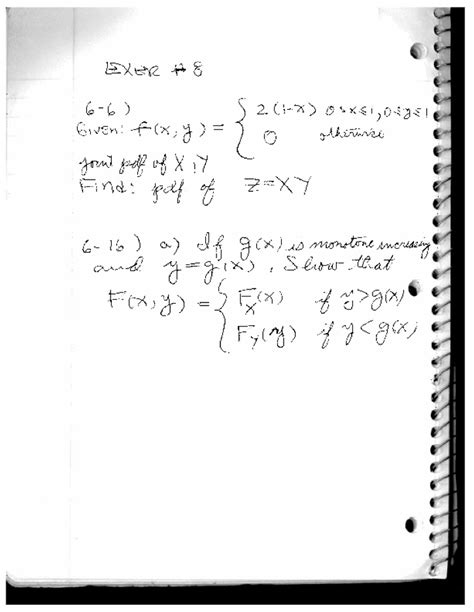 EXER # 8
6-6) 
Given: f(x,y) = { 2(1-x) 0≤x≤1, 0≤y≤1
0 otherwise
joint pdf of X,Y
Find: pdf of Z=XY
6-16) a) If g(x) is monotone increasing
and y=g(x), Show that
F(x,y) = { F_X(x) if y>g(x)
F_Y(y) if y<g(x)